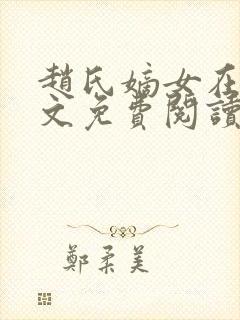 趙氏嫡女在
文免費閱讀
鄭柔美